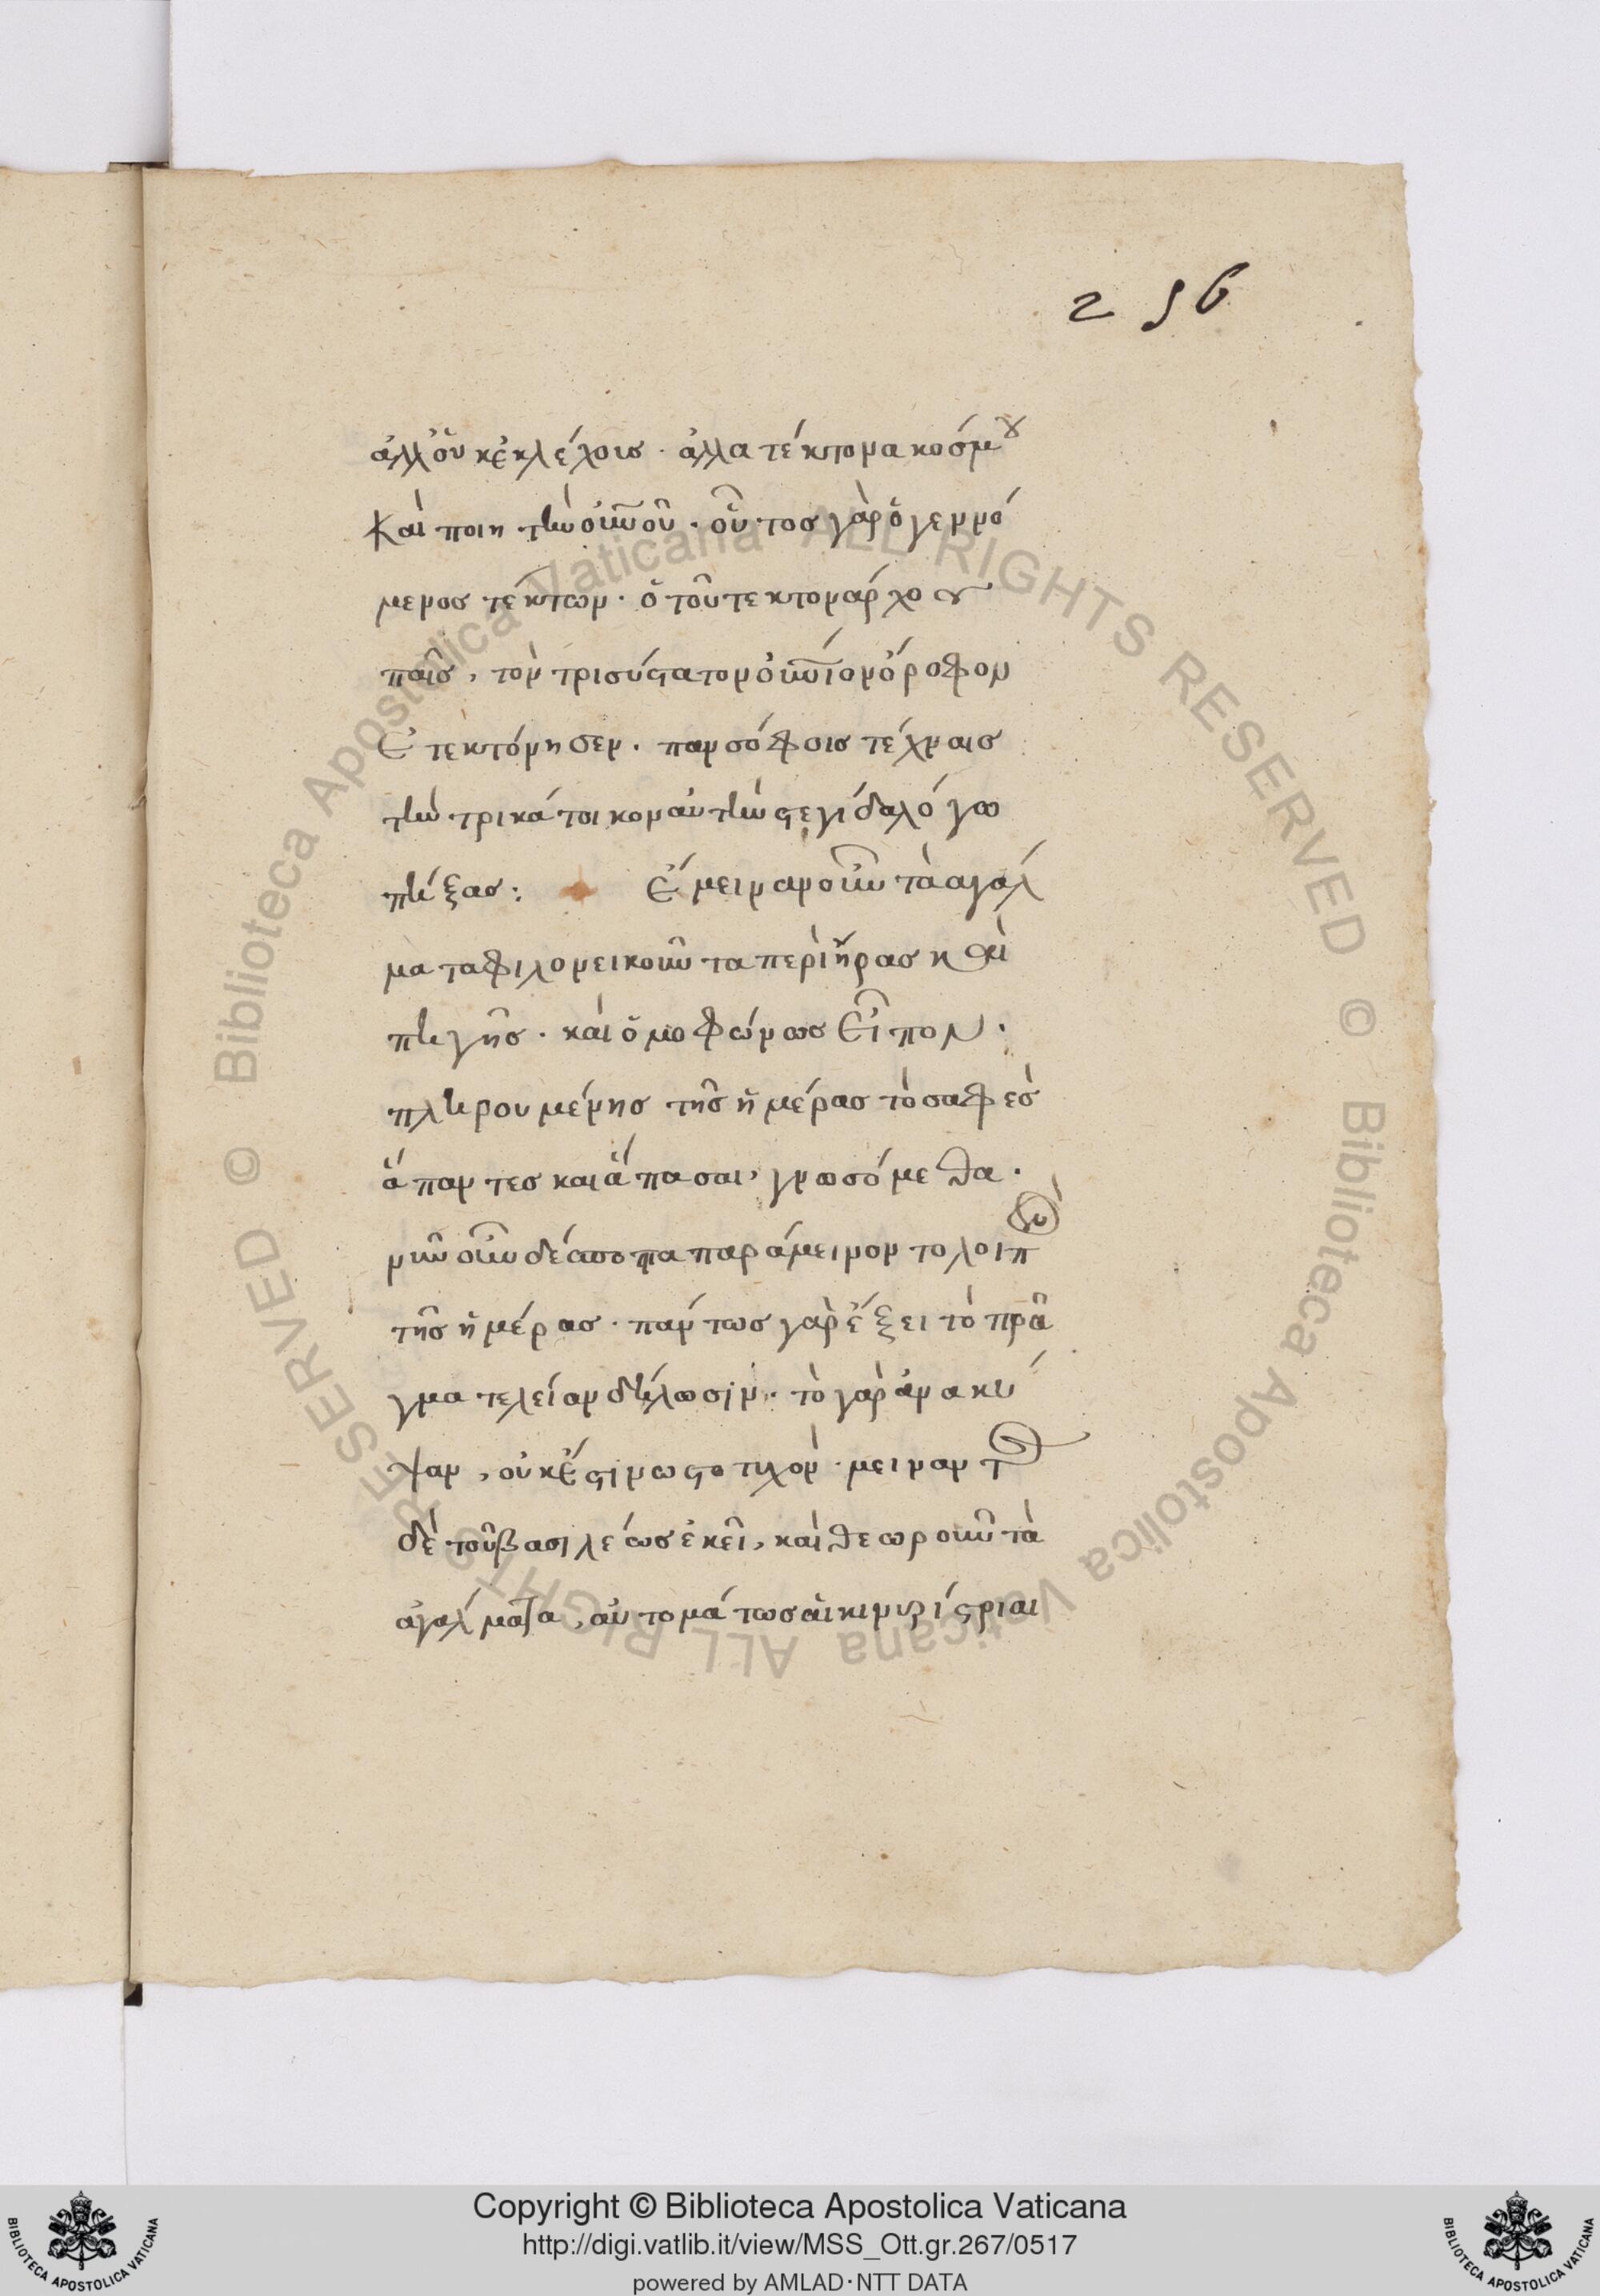 256
ἀλλ' οὐκ ἐκλέχοις · ἀλλα τέκτονα κοσμου
καὶ ποιητὴν οὐνοῦ · οὗτος γὰρ ὁ γεννό
μενος τέκτων · ὁ τοῦ τεκτονάρχου
παῖς, τὸν τρισύστατον οὐνίον ὄροφον
ἐτεκτόνησεν · πανσόφοις τέχναις
τὴν τρικάτοικον αὐτὴν στεγίδα λόγω
πήξας : Ἔμειναν οὖν τὰ ἀγάλ
ματα φιλονεικοῦντα περὶ ἥρας καὶ
πηγῆς · καὶ ὁμοφώνως εἶπον ·
πληρουμένης τῆς ἡμέρας τὸ σαφὲς
ἅπαντες και ἅπασαι, γνωσόμεθα ·
νῦν οὖν δέσποτα παράμεινον το λοιπὸν
τῆς ἡμέρας · πάντως γὰρ ἕξει τὸ πρᾶ
γμα τελείαν δήλωσιν · τὸ γὰρ ἀνακύ
ψαν, οὐκ ἔστιν ὡς τὸ τυχὸν · μειναντος
δὲ τοῦ βασιλέως ἐκεῖ, καὶ θεωροῦντα
ἀγάλματα, αὐτομάτως αἱ κινυρίστριαι
Copyright © Biblioteca Apostolica Vaticana
http://digi.vatlib.it/view/MSS_Ott.gr.267/0517
powered by AMLAD·NTT DATA
BIBLIOTECA APOSTOLICA VATICANA
BIBLIOTECA APOSTOLICA VATICANA
© Biblioteca Apostolica Vaticana ALL RIGHTS RESERVED
© Biblioteca Apostolica Vaticana ALL RIGHTS RESERVED